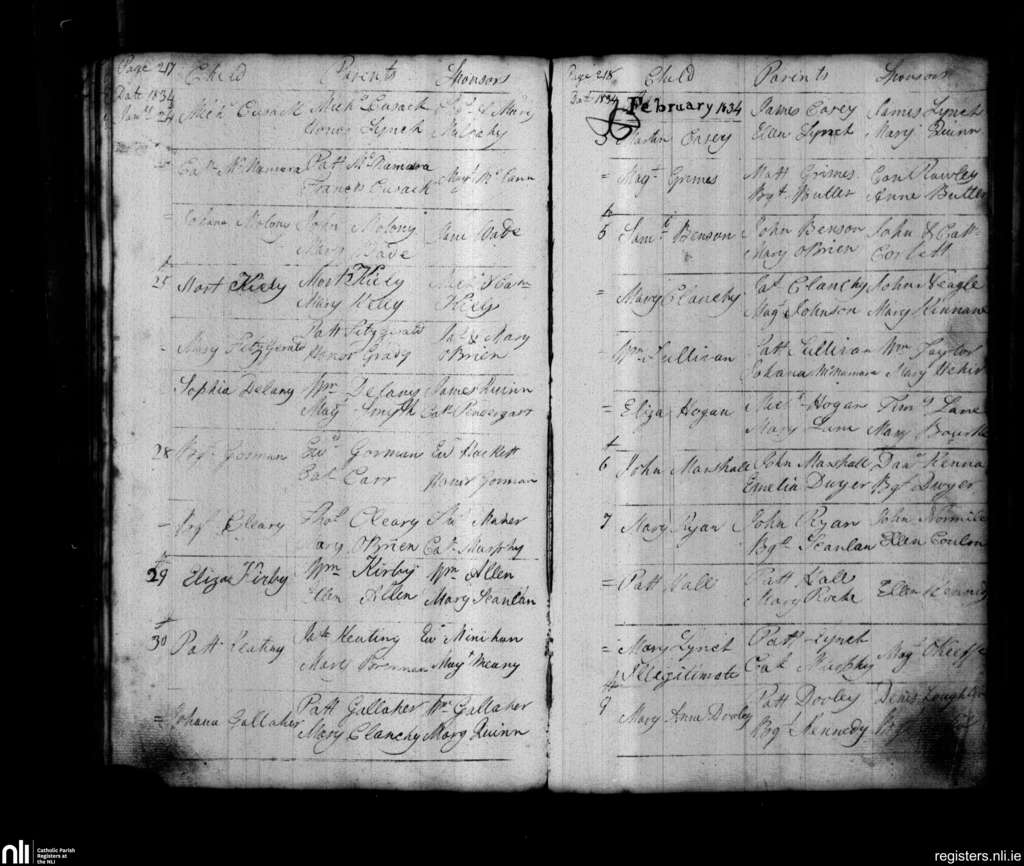 Page 217 Child Parents Sponsors
Date 1834
Jany 24 Mich Cusack Mich Cusack & Mary
Honor Lynch Mulcahy
Cath McNamara Patt McNamara
Francis Cusack Mary McCann
Johana Molony John Molony Jane Wade
Mary Wade
25 Mort Kiely Mort Kiely
Mary Kiely Kiely
Mary FitzGerald Patt FitzGerald & Mary
Honor Grady OBrien
Sophia Delany Wm Delany James Quinn
Mag Smyth Cath Pendergast
28 Gorman Gorman Ed Hackett
Cat Carr Honor Gorman
Cleary Thos Cleary Maher
Mary OBrien Cat Murphy
29 Eliza Kirby Wm Kirby Wm Allen
Ellen Allen Mary Scanlan
30 Patt Keating Keating Ed Minihan
Mary Brennan Magt Meany
= Johana Gallaher Patt Gallaher Wm Gallaher
Mary Clanchy Mary Quinn
Page 218 Child Parents Sponsors
Dat 1834
February 1834 James Casey James Lynch
3 Martin Casey Ellen Lynch Mary Quinn
= Magt Grimes Matt Grimes Con Rowley
Bgt Butler Anne Butler
5 Saml Benson John Benson John & Cath
Mary OBrien Corbett
= Mary Clanchy Pat Clanchy John Neagle
Magt Johnson Mary Kinnane
Wm Sullivan Patt Sullivan Wm Taylor
Johana McNamara Mary
= Eliza Hogan Michl Hogan Timy Lane
Mary Lane Mary Bourke
6 John Marshall John Marshall Danl Kenna
Emelia Dwyer Bgt Dwyer
7 Mary Ryan John Ryan John Normile
Bgt Scanlan Ellen
= Patt Hall Patt Hall
Mary Roche Ellen Kennedy
= Mary Lynch Patt Lynch
Illegitimate Cat Murphy Magt OKeeffe
9 Mary Anne Dooley Patt Dooley Denis Loughlin
Bgt Kennedy
nli Catholic Parish
Registers at
the NLI
registers.nli.ie